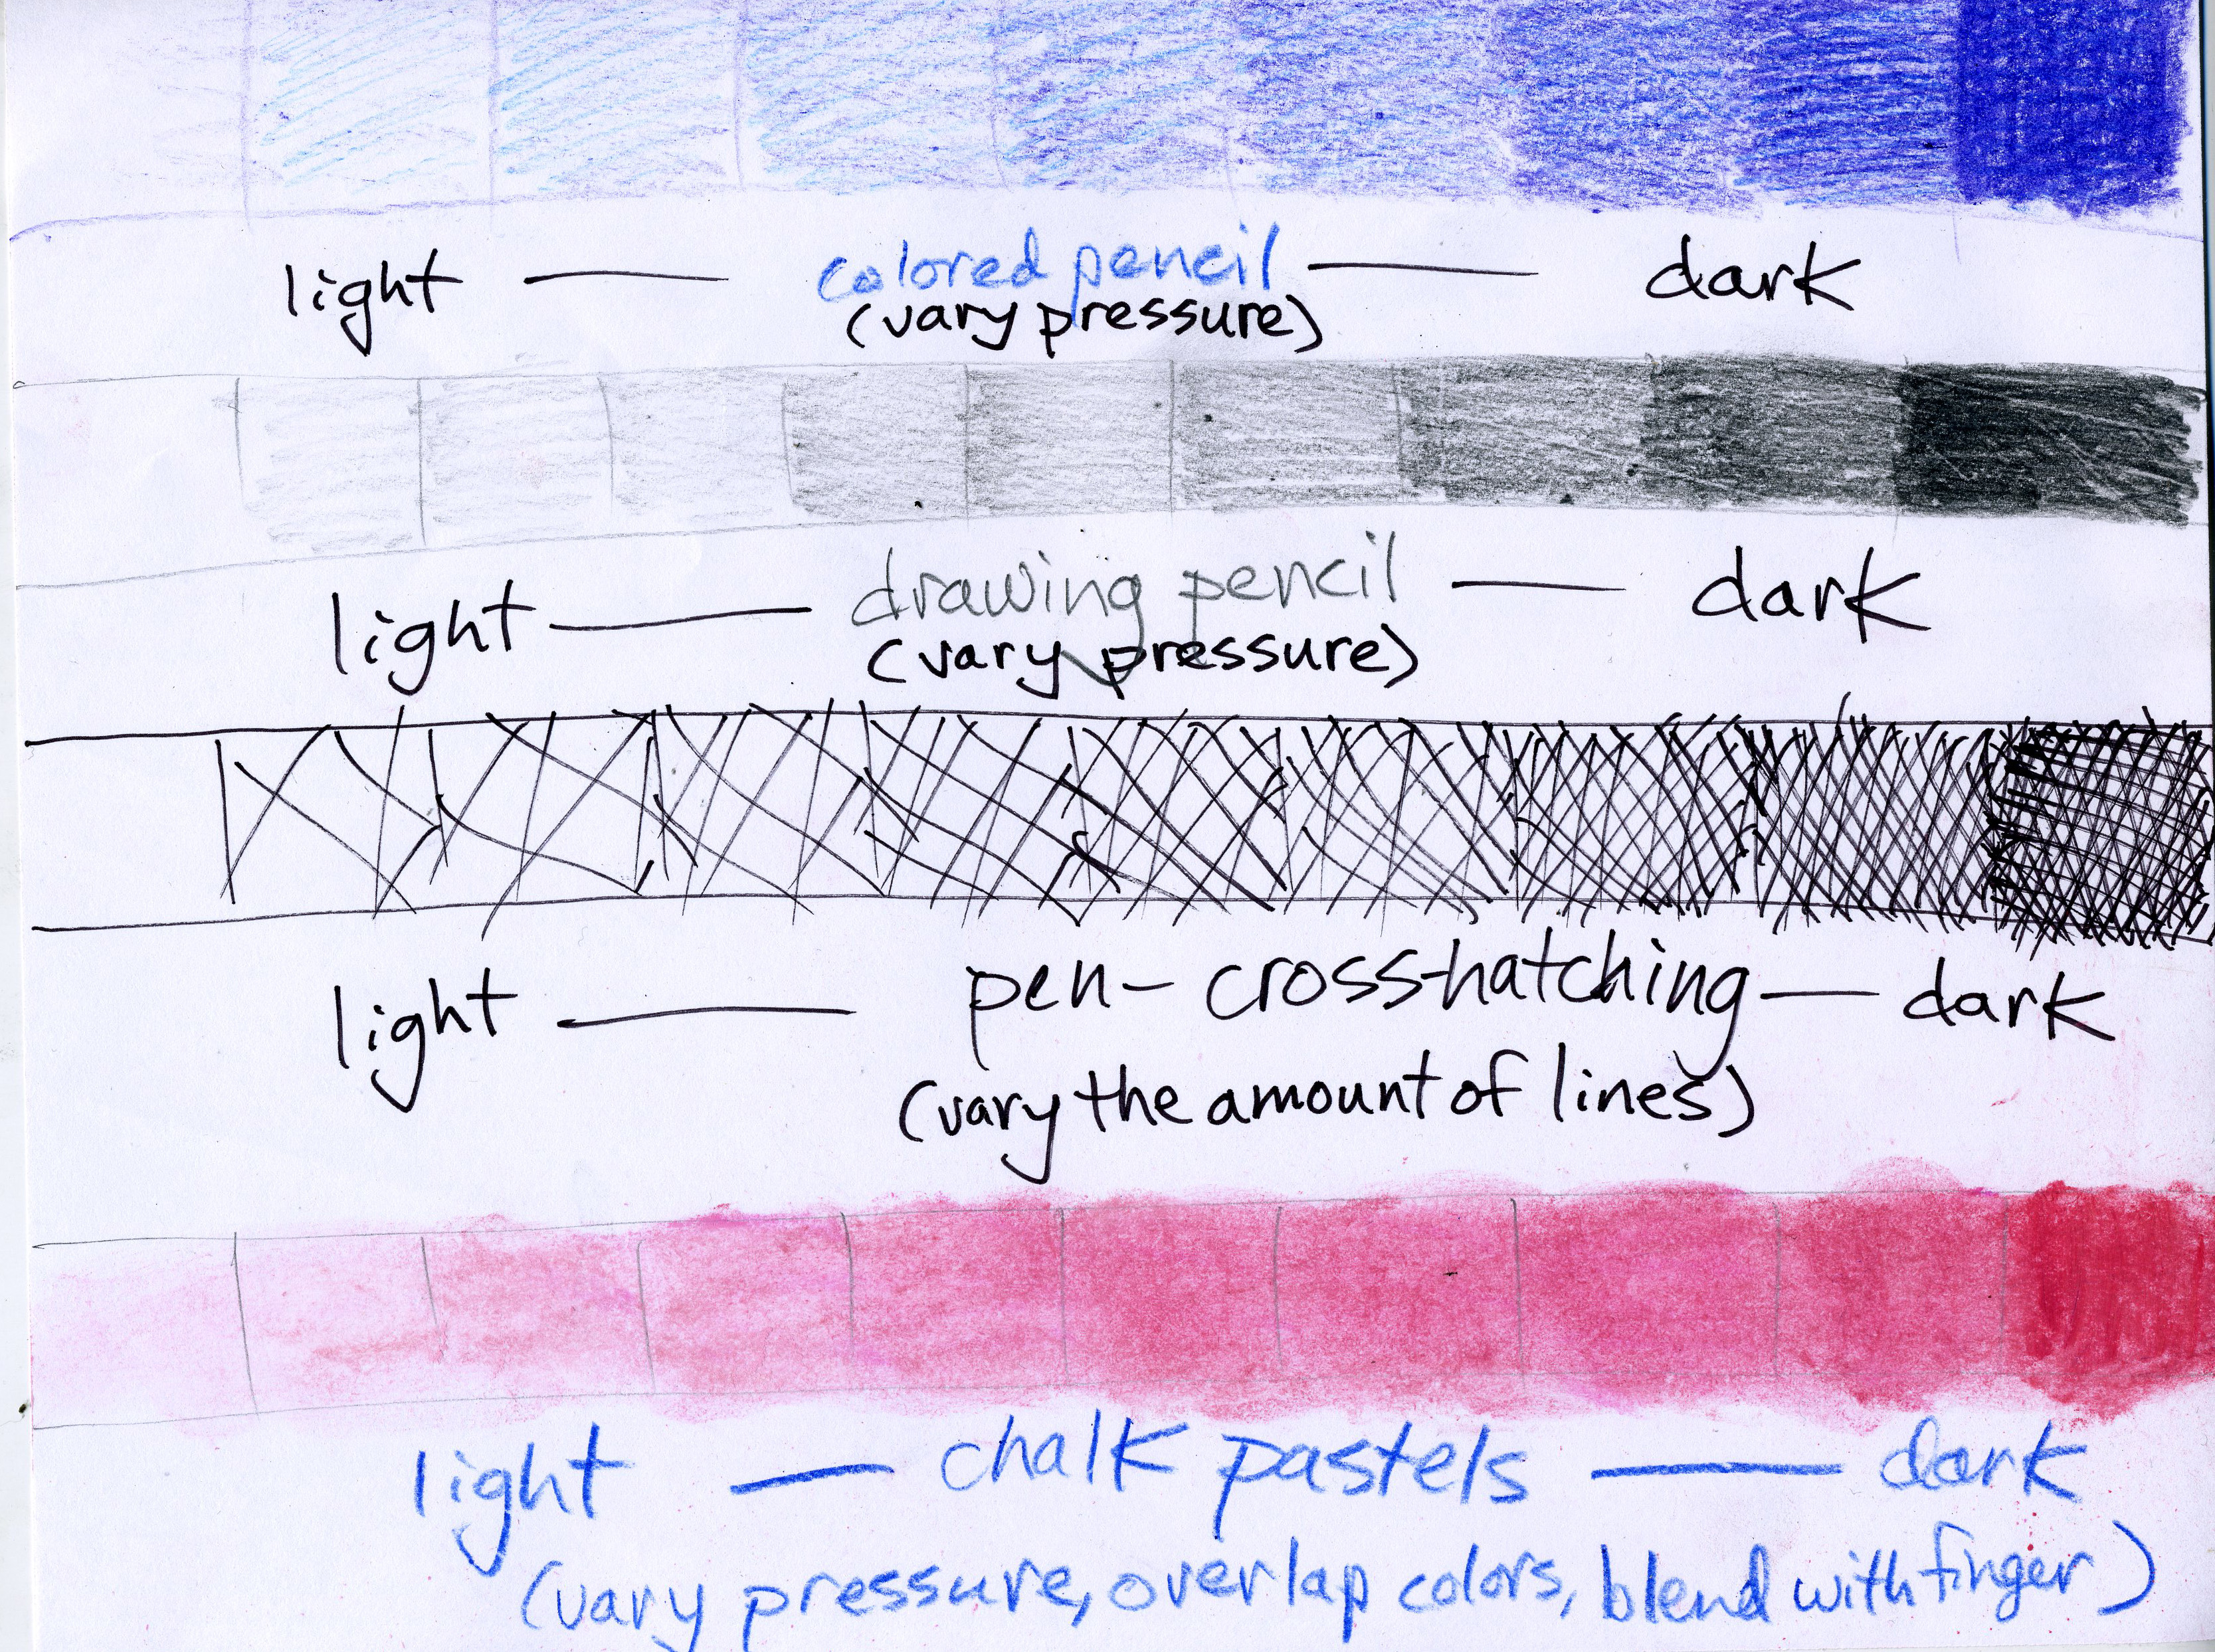 light — colored pencil — dark
(vary pressure)
light — drawing pencil — dark
(vary pressure)
light — pen - cross-hatching — dark
(vary the amount of lines)
light — chalk pastels — dark
(vary pressure, overlap colors, blend with finger)